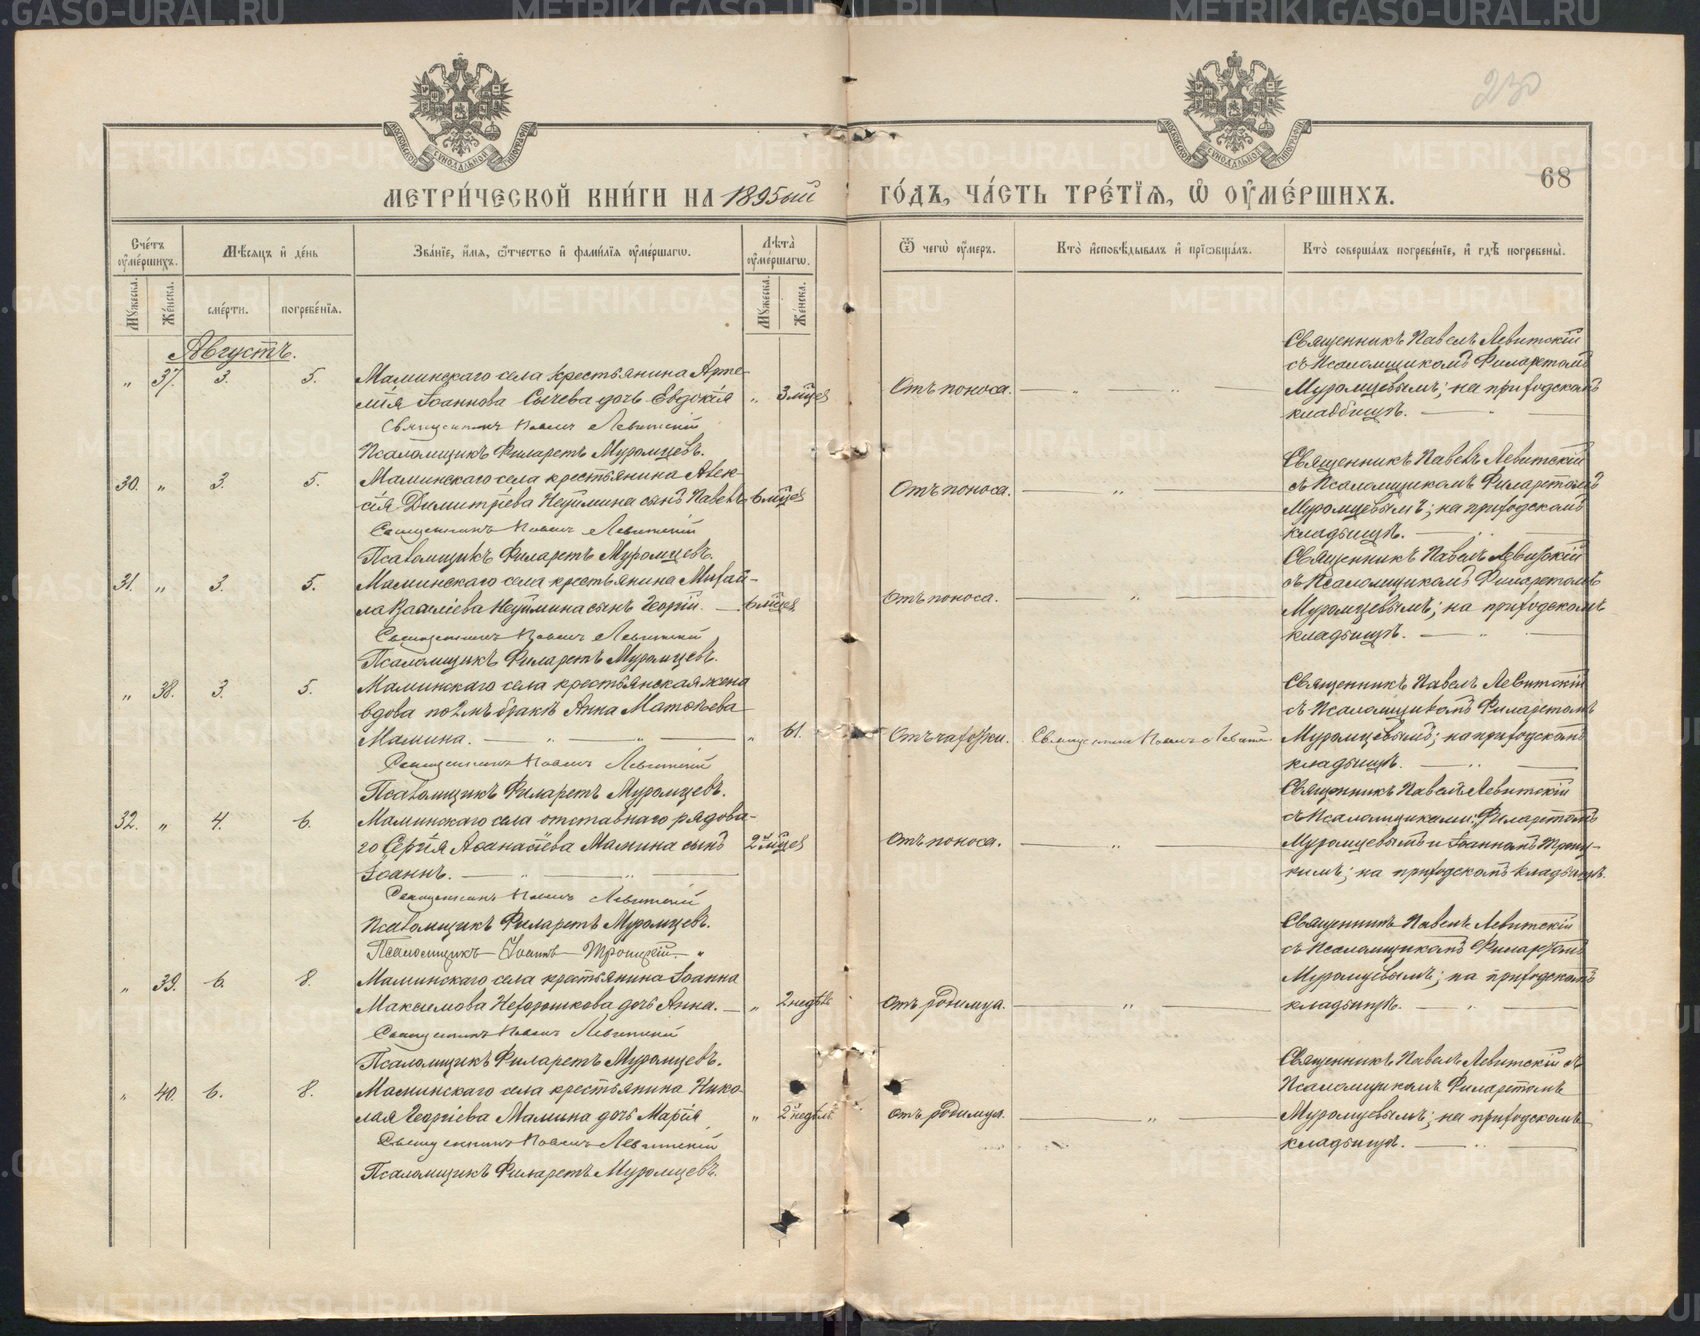 230
68
МЕТРИ́ЧЕСКОЙ КНИ́ГИ НА 1895ый ГО́ДЪ, ЧА́СТЬ ТРЕ́ТЇѦ, Ѡ҆ ОУ҆МЕ́РШИХЪ.
Сче́тъ оу҆ме́ршихъ.
Мꙋ́жеска.
Же́нска.
Мѣ́сѧцъ и҆ де́нь
сме́рти.
погребе́нїѧ.
Зва́нїе, и҆́мѧ, ѻ҆́тчество и҆ фами́лїѧ оу҆ме́ршагѡ.
Лѣ́та оу҆ме́ршагѡ.
Мꙋ́жеска.
Же́нска.
Ѿ чегѡ̀ оу҆́меръ.
Кто̀ и҆сповѣ́дывалъ и҆ прїѡбща́лъ.
Кто̀ соверша́лъ погребе́нїе, и҆ гдѣ̀ погребены̀.
Августъ.
" 37. 3. 5. Маминскаго села крестьянина Арте-
мія Іоаннова Сычева дочь Евдокія " 3 мцев
Священникъ Павелъ Левитскій
Псаломщикъ Филаретъ Муромцевъ.
Отъ поноса. — " — " —
Священникъ Павелъ Левитскій
съ Псаломщикомъ Филаретомъ
Муромцевымъ; на приходскомъ
кладбищѣ. — " —
30. " 3. 5. Маминскаго села крестьянина Алек-
сія Димитріева Неуймина сынъ Павелъ 6 мцев
Священникъ Павелъ Левитскій
Псаломщикъ Филаретъ Муромцевъ.
Отъ поноса. — " —
Священникъ Павелъ Левитскій
съ Псаломщикомъ Филаретомъ
Муромцевымъ; на приходскомъ
кладбищѣ. —
31. " 3. 5. Маминскаго села крестьянина Михаи-
ла Василіева Неуймина сынъ Георгій. — 6 мцев
Священникъ Павелъ Левитскій
Псаломщикъ Филаретъ Муромцевъ.
Отъ поноса. — " —
Священникъ Павелъ Левитскій
съ Псаломщикомъ Филаретомъ
Муромцевымъ; на приходскомъ
кладбищѣ. — " —
" 38. 3. 5. Маминскаго села крестьянская жена
вдова по 2мъ бракѣ Анна Матѳѣева
Мамина. — " — " — " 61.
Священникъ Павелъ Левитскій
Псаломщикъ Филаретъ Муромцевъ.
Отъ чахотки. Священникъ Павелъ Левитскій
Священникъ Павелъ Левитскій
съ Псаломщикомъ Филаретомъ
Муромцевымъ; на приходскомъ
кладбищѣ. — " —
32. " 4. 6. Маминскаго села отставнаго рядова-
го Сергія Аѳанасіева Мамина сынъ 2 мцев
Іоаннъ. — " — " —
Священникъ Павелъ Левитскій
Псаломщикъ Филаретъ Муромцевъ.
Псаломщикъ Іоаннъ Троицкій. — "
Отъ поноса. — " —
Священникъ Павелъ Левитскій
съ Псаломщиками: Филаретомъ
Муромцевымъ и Іоанномъ Троиц-
кимъ; на приходскомъ кладбищѣ.
" 39. 6. 8. Маминскаго села крестьянина Іоанна
Максимова Нехорошкова дочь Анна. — " 2 недѣль
Священникъ Павелъ Левитскій
Псаломщикъ Филаретъ Муромцевъ.
Отъ родимца. — " —
Священникъ Павелъ Левитскій
съ Псаломщикомъ Филаретомъ
Муромцевымъ; на приходскомъ
кладбищѣ. — " —
" 40. 6. 8. Маминскаго села крестьянина Нико-
лая Георгіева Мамина дочь Марія " 2 недѣль
Священникъ Павелъ Левитскій
Псаломщикъ Филаретъ Муромцевъ.
Отъ родимца. — " —
Священникъ Павелъ Левитскій съ
Псаломщикомъ Филаретомъ
Муромцевымъ; на приходскомъ
кладбищѣ. — " —
METRIKI.GASO-URAL.RU